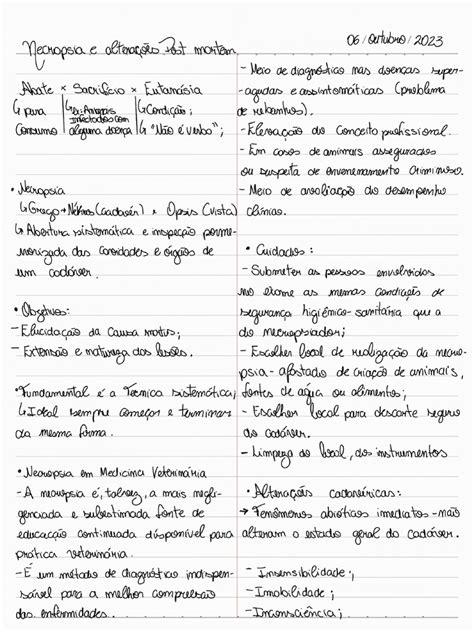 Necropsia e alterações Post mortem
06/outubro/2023
Abate × Sacrifício × Eutanásia
↳ para | ↳ Ex: Animais | ↳ Condição;
Consumo | infectados com | ↳ "Não é verbo";
alguma doença
• Necropsia
↳ Grego → Nékros (cadáver) e Opsis (vista)
↳ Abertura sistemática e inspeção porme-
norizada das cavidades e órgãos de
um cadáver.
• Objetivos:
- Elucidação da causa mortis;
- Extensão e natureza das lesões.
• Fundamental é a Técnica sistemática;
↳ Ideal sempre começar e terminar
da mesma forma.
• Necropsia em Medicina Veterinária
- A necropsia é, talvez, a mais negli-
genciada e subestimada fonte de
educação continuada disponível para
prática veterinária.
- É um método de diagnóstico indispen-
sável para a melhor compreensão
das enfermidades.
- Meio de diagnóstico nas doenças super-
-agudas e assintomáticas (problema
de rebanhos).
- Elevação do conceito profissional.
- Em casos de animais assegurados
ou suspeita de envenenamento criminoso.
- Meio de avaliação do desempenho
clínico.
• Cuidados:
- Submeter as pessoas envolvidas
no exame as mesmas condições de
segurança higiênico-sanitária que a
do necropsiador;
- Escolher local de realização da necro-
psia - afastado de criação de animais,
fontes de água ou alimentos;
- Escolher local para descarte seguro
do cadáver.
- Limpeza do local, dos instrumentos
• Alterações cadavéricas:
→ Fenômenos abióticos imediatos - não
alteram o estado geral do cadáver.
- Insensibilidade;
- Imobilidade;
- Inconsciência;